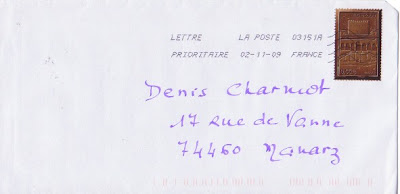 LETTRE LA POSTE 03151A
PRIORITAIRE 02-11-09 FRANCE
Denis Charniot
17 Rue de Vanne
74460 Manarz